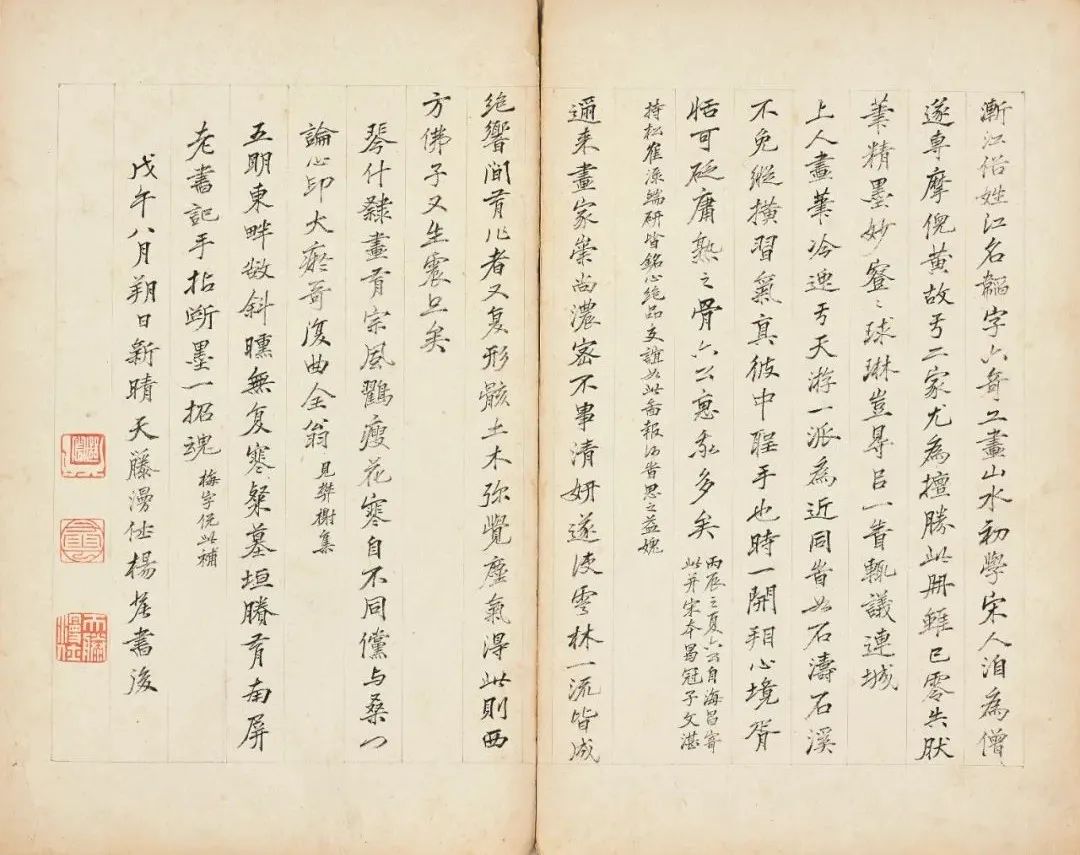 漸江俗姓江名韜字六奇工畫山水初學宋人洎為僧
遂專摩倪黃故于二家尤為擅勝此冊雖已零失肰
筆精墨妙寥〻球琳豈尋呂一眚輒議連城
上人畫筆冷逸于天游一派為近同眚如石濤石溪
不免縱橫習氣真彼中聖手也時一開翔心境胥
恬可砭庸熟之骨六公惠我多矣
丙辰之夏六公自海昌寄
此并宋本曷冠子文湛
持松崔澡端研皆銘心絶品交誼如此啚報何眚思之益媿
邇來畫家崇尚濃密不事清妍遂使雩林一流皆成
絶響間有作者又复形骸土木弥覺塵氣得此則西
方佛子又生震旦矣
琴什隸畫有宗風鸛瘦花寒自不同儻与桑门
論心印大瘀哥復曲全翁
見樊榭集
五明東畔數斜曛無复寒粲墓垣賸有南屏
老書記手拈斷墨一招魂
梅字倪此補
戊午八月朔日新晴天藤漫仕楊書後